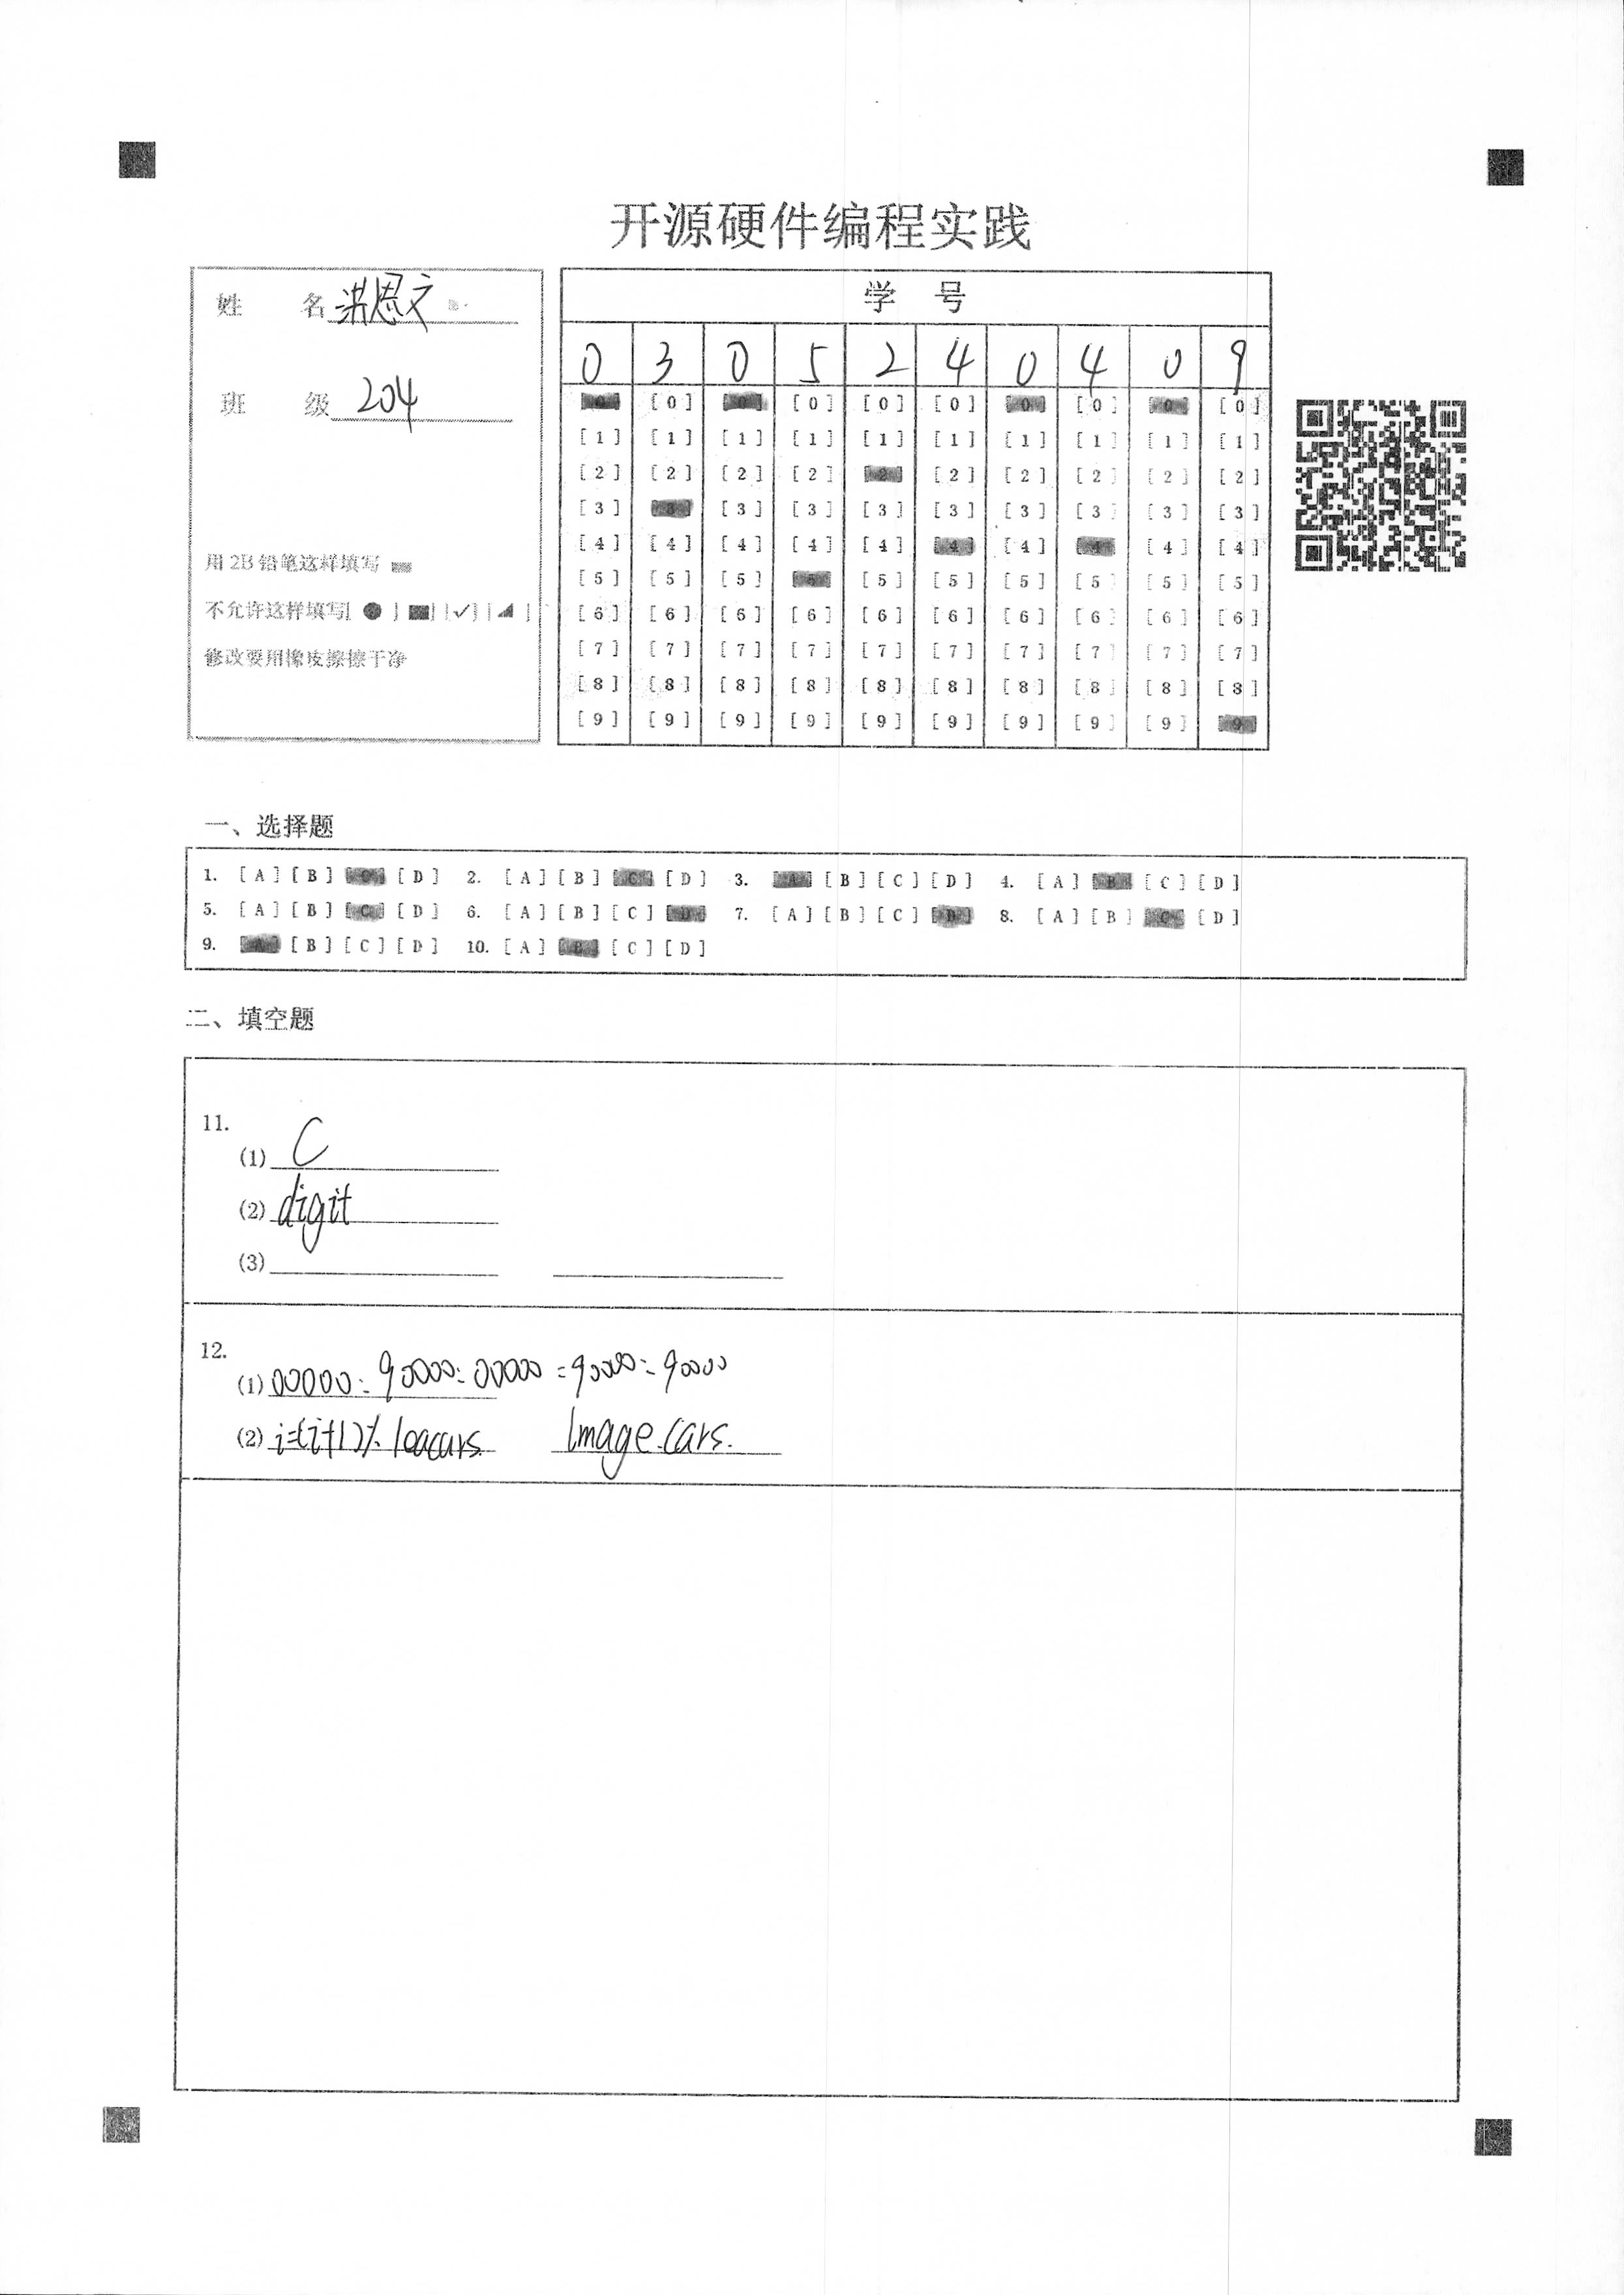 开源硬件编程实践
姓 名 洪恩文
班 级 204
用 2B 铅笔这样填写
不允许这样填写[ ● ] [■] [✓] [◢]
修改要用橡皮擦擦干净
学 号
0 3 0 5 2 4 0 4 0 9
[0] [0] [0] [0] [0] [0] [0] [0] [0] [0]
[1] [1] [1] [1] [1] [1] [1] [1] [1] [1]
[2] [2] [2] [2] [2] [2] [2] [2] [2] [2]
[3] [3] [3] [3] [3] [3] [3] [3] [3] [3]
[4] [4] [4] [4] [4] [4] [4] [4] [4] [4]
[5] [5] [5] [5] [5] [5] [5] [5] [5] [5]
[6] [6] [6] [6] [6] [6] [6] [6] [6] [6]
[7] [7] [7] [7] [7] [7] [7] [7] [7] [7]
[8] [8] [8] [8] [8] [8] [8] [8] [8] [8]
[9] [9] [9] [9] [9] [9] [9] [9] [9] [9]
一、选择题
1. [A] [B] [C] [D] 2. [A] [B] [C] [D] 3. [A] [B] [C] [D] 4. [A] [B] [C] [D]
5. [A] [B] [C] [D] 6. [A] [B] [C] [D] 7. [A] [B] [C] [D] 8. [A] [B] [C] [D]
9. [A] [B] [C] [D] 10. [A] [B] [C] [D]
二、填空题
11.
(1) C
(2) digit
(3)
12.
(1) 00000:90000:00000:90000:90000
(2) i=(i+1)% Image.cars.